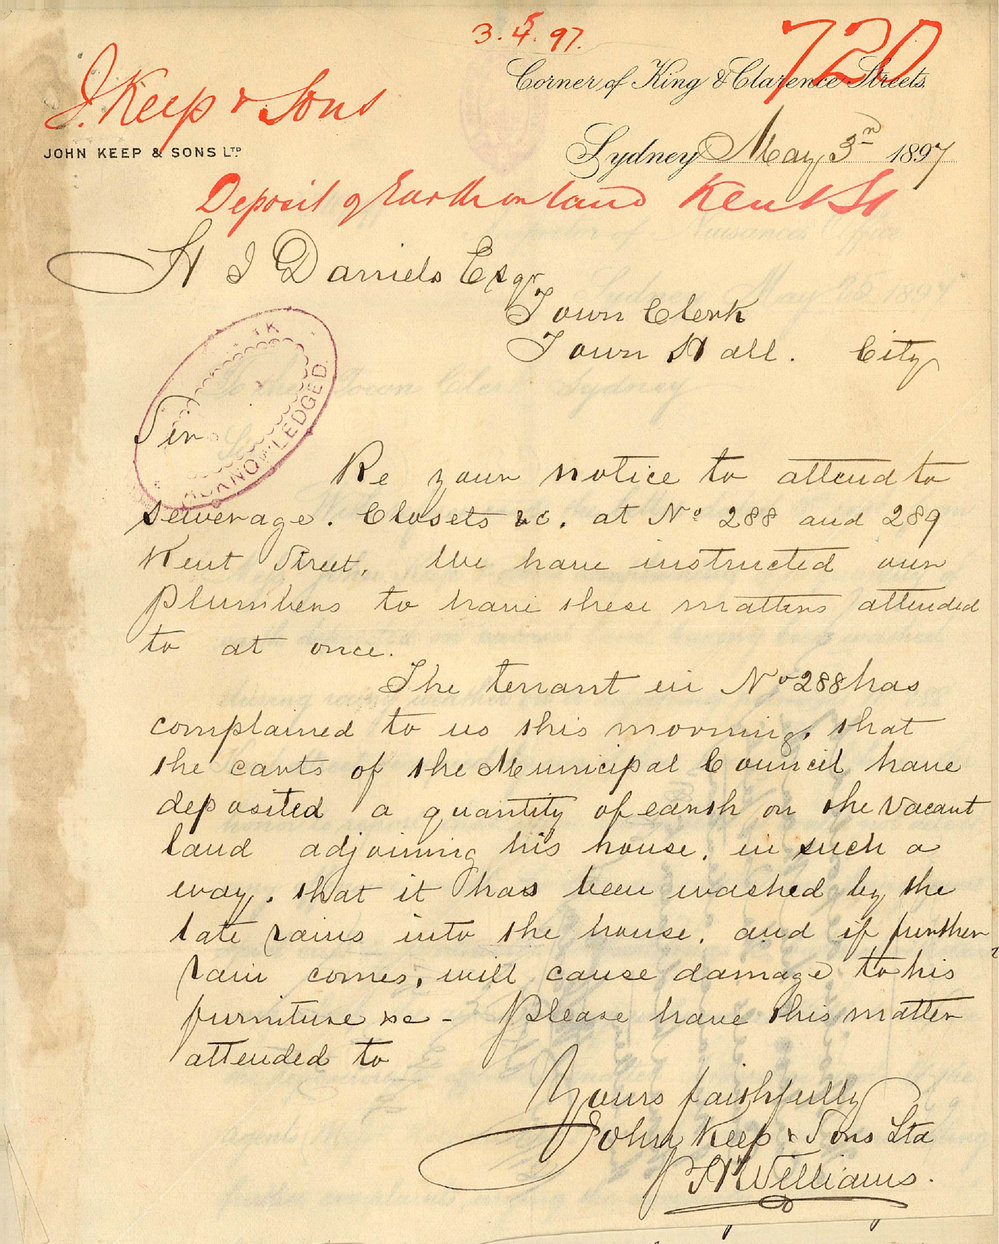 3.5.97.
720
Corner of King & Clarence Streets.
J. Keep & Sons
JOHN KEEP & SONS LTD
Sydney May 3rd 1897
Deposit of Earth on land Kent St
H J Daniels Esqr
Town Clerk
Town Hall. City
ACKNOWLEDGED
Sir
Re your notice to attend to
sewerage. Closets &c. at No 288 and 289
Kent Street. We have instructed our
Plumbers to have these matters attended
to at once.
The tenant in No 288 has
complained to us this morning, that
the carts of the Municipal Council have
deposited a quantity of earth on the vacant
land adjoining his house. in such a
way, that it has been washed by the
late rains into the house, and if further
rain comes, will cause damage to his
furniture &c - Please have this matter
attended to
Yours faithfully
John Keep & Sons Ltd
H Williams.